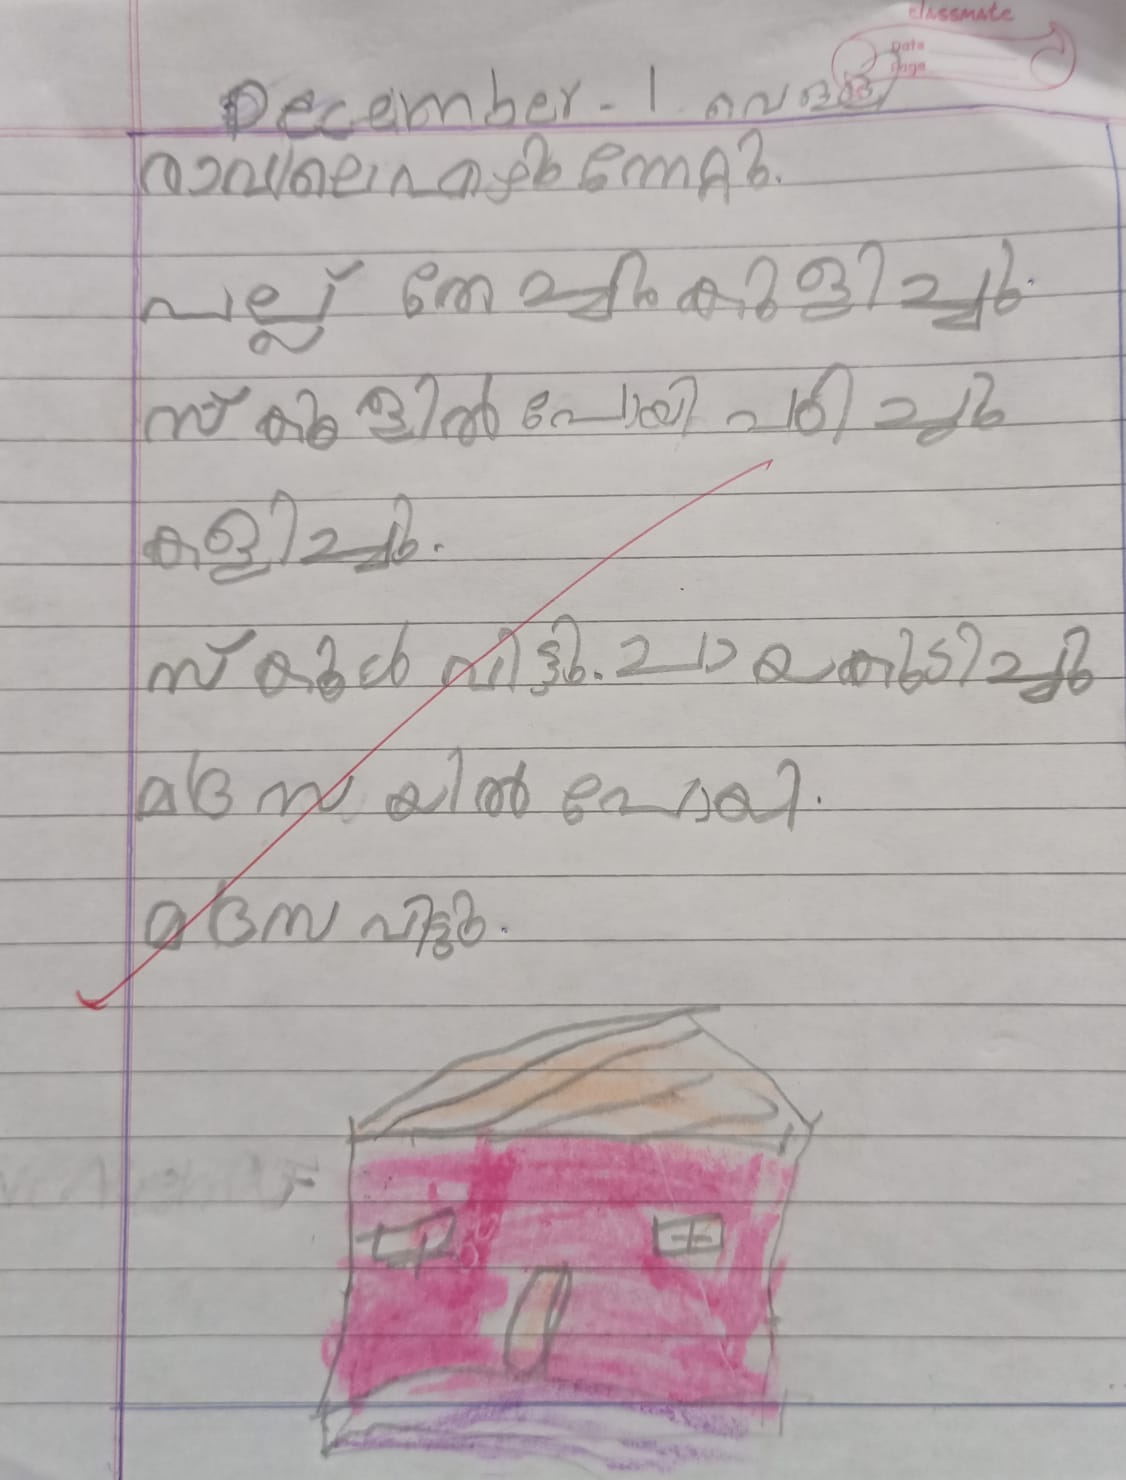 classmate
Date
Page
December - 1
രാവിലെ എഴുന്നേറ്റു.
പല്ല് തേച്ചു കുളിച്ചു.
സ്കുളിൽ പോയി പഠിച്ചു
കളിച്ചു.
സ്കുൾ വിട്ടു. ചായ കുടിച്ചു
മദ്രസയിൽ പോയി.
മദ്രസ വിട്ടു.